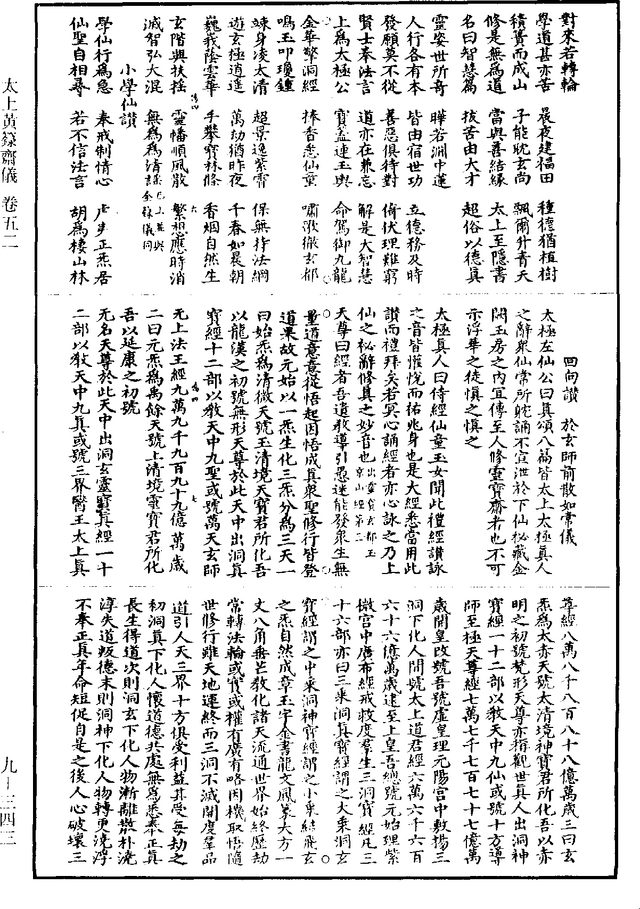 對來若轉輪
學道甚亦苦　晨夜建福田　種德猶植樹
積簣而成山　子能耽玄尚　飄爾升青天
修是無為道　當與善結緣　太上至隱書
名曰智慧篇　拔苦由大才　超俗以德真
靈姿世所奇　曄若淵中蓮
人行各有本　皆由宿世功　立德務及時
發願莫不從　善惡俱待對　倚伏理難窮
賢士奉法言　道亦在兼忘　解是大智慧
上為太極公　寶蓋連玉輿　命駕御九龍
金華擎洞經　捧香悉仙童　嘯歌徹玄都
鳴玉叩瓊鐘
竦身凌太清　超景逸紫霄　保無持法網
遊玄極逍遙　萬劫猶昨夜　千春如晨朝
巍我蔭雲華　手攀寶林條　香烟自然生
玄階與扶搖　靈幡順風散　繁想應時消
滅智弘大混　無為為清謠　已上並與金籙儀同
小學仙讚
學仙行為急　奉戒制情心　正炁居
仙聖自相尋　若不信法言　胡為棲山林
回向讚　於玄師前散如常儀
太極左仙公曰真頌八篇皆太上太極真人
之辭衆仙常所躭誦不宣泄於下仙秘藏金
闕玉房之內宜傳至人修靈寶齋者也不可
示浮華之徒慎之慎之
太極真人曰侍經仙童玉女聞此禮經讚詠
之音皆懽悅而祐兆身也是大經悉當用此
讚而禮拜矣若冥心誦經者亦心詠之乃上
仙之秘辭修真之妙音也出靈寶玄都玉京山經第二
天尊曰經者吾遺教導引愚迷能發衆生無
量道意意從悟起因悟成真衆聖修行皆登
道果故元始以一炁生化三炁分為三天一
曰始炁為清微天號玉清境天寶君所化吾
以龍漢之初號無形天尊於此天中出洞真
寶經十二部以敎天中九聖或號萬天玄師
無上法王經九萬九千九百九十九億萬歲
二曰元炁為禹餘天號上清境靈寶君所化
吾以延康之初號
元名天尊於此天中出洞玄靈寶真經一十
二部以敎天中九真或號三界醫王太上真
尊經八萬八千八百八十八億萬歲三曰玄
炁為太赤天號太清境神寶君所化吾以赤
明之初號梵形天尊亦稱觀世真人出洞神
寶經一十二部以敎天中九仙或號十方導
師至極天尊經七萬七千七百七十七億萬
歲開皇改號吾號虛皇理元陽宮中敷揚三
洞下化人間號太上道君經六萬六千六百
六十六億萬歲逮至上皇吾總號元始理紫
微宮中廣布經戒救度羣生三洞寶經凡三
十六部亦曰三乘洞真寶經謂之大乘洞玄
寶經謂之中乘洞神寶經謂之小乘結飛玄
之炁自然成章玉字金書龍文鳳篆大方一
丈八角垂芒敎化諸天流通世界始終歷劫
當轉法輪或實或權有廣有略因機取悟隨
世修行雖天地運終而三洞不滅開度羣品
道引人天三界十方俱受利益其受每劫之
初洞真下化人懷道德共處無為悉奉正真
長生得道次則洞玄下化人物漸離散朴澆
淳失道叛德末則洞神下化人物轉更澆浮
不奉正真年命短促自是之後人心破壞三
太上黃籙齋儀　卷五二
九―三四三